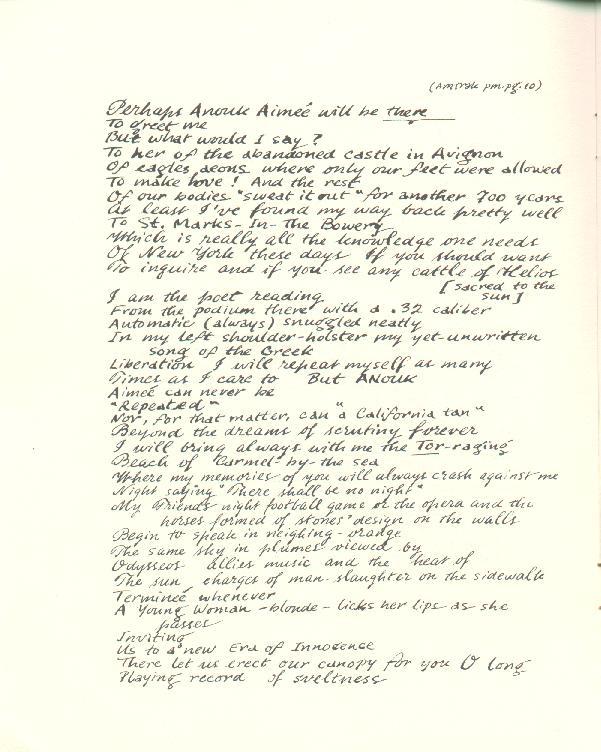 (Amtrak pm. pg. 10)
Perhaps Anouk Aimeé will be there
To greet me
But what would I say?
To her of the abandoned castle in Avignon
Of eagles aeons where only our feet were allowed
To make love! And the rest
Of our bodies "sweat it out" for another 700 years
At least I've found my way back pretty well
To St. Marks-In-The Bowery
Which is really all the knowledge one needs
Of New York these days If you should want
To inquire and if you see any cattle of Helios
[sacred to the
sun]
I am the poet reading
From the podium there with a .32 caliber
Automatic (always) snuggled neatly
In my left shoulder-holster my yet-unwritten
song of the Greek
Liberation I will repeat myself as many
Times as I care to But Anouk
Aimeé can never be
"Repeated"
Nor, for that matter, can a "California tan"
Beyond the dreams of scrutiny forever
I will bring always with me the Tor-raging
Beach of Carmel-by-the sea
Where my memories of you will always crash against me
Night saying "There shall be no night"
My Friends' night football game or the opera and the
horses formed of stones' design on the walls
Begin to speak in neighing-orange
The same sky in plumes viewed by
Odysseos allies music and the heat of
The sun charges of man-slaughter on the sidewalk
Termineé whenever
A Young Woman -blonde- licks her lips as she
passes
Inviting
Us to a new Era of Innocence
There let us erect our canopy for you O long
Playing record of sveltness